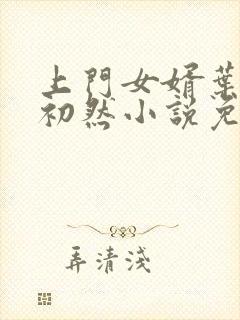 上門女婿葉
初然小說免
弄清淺